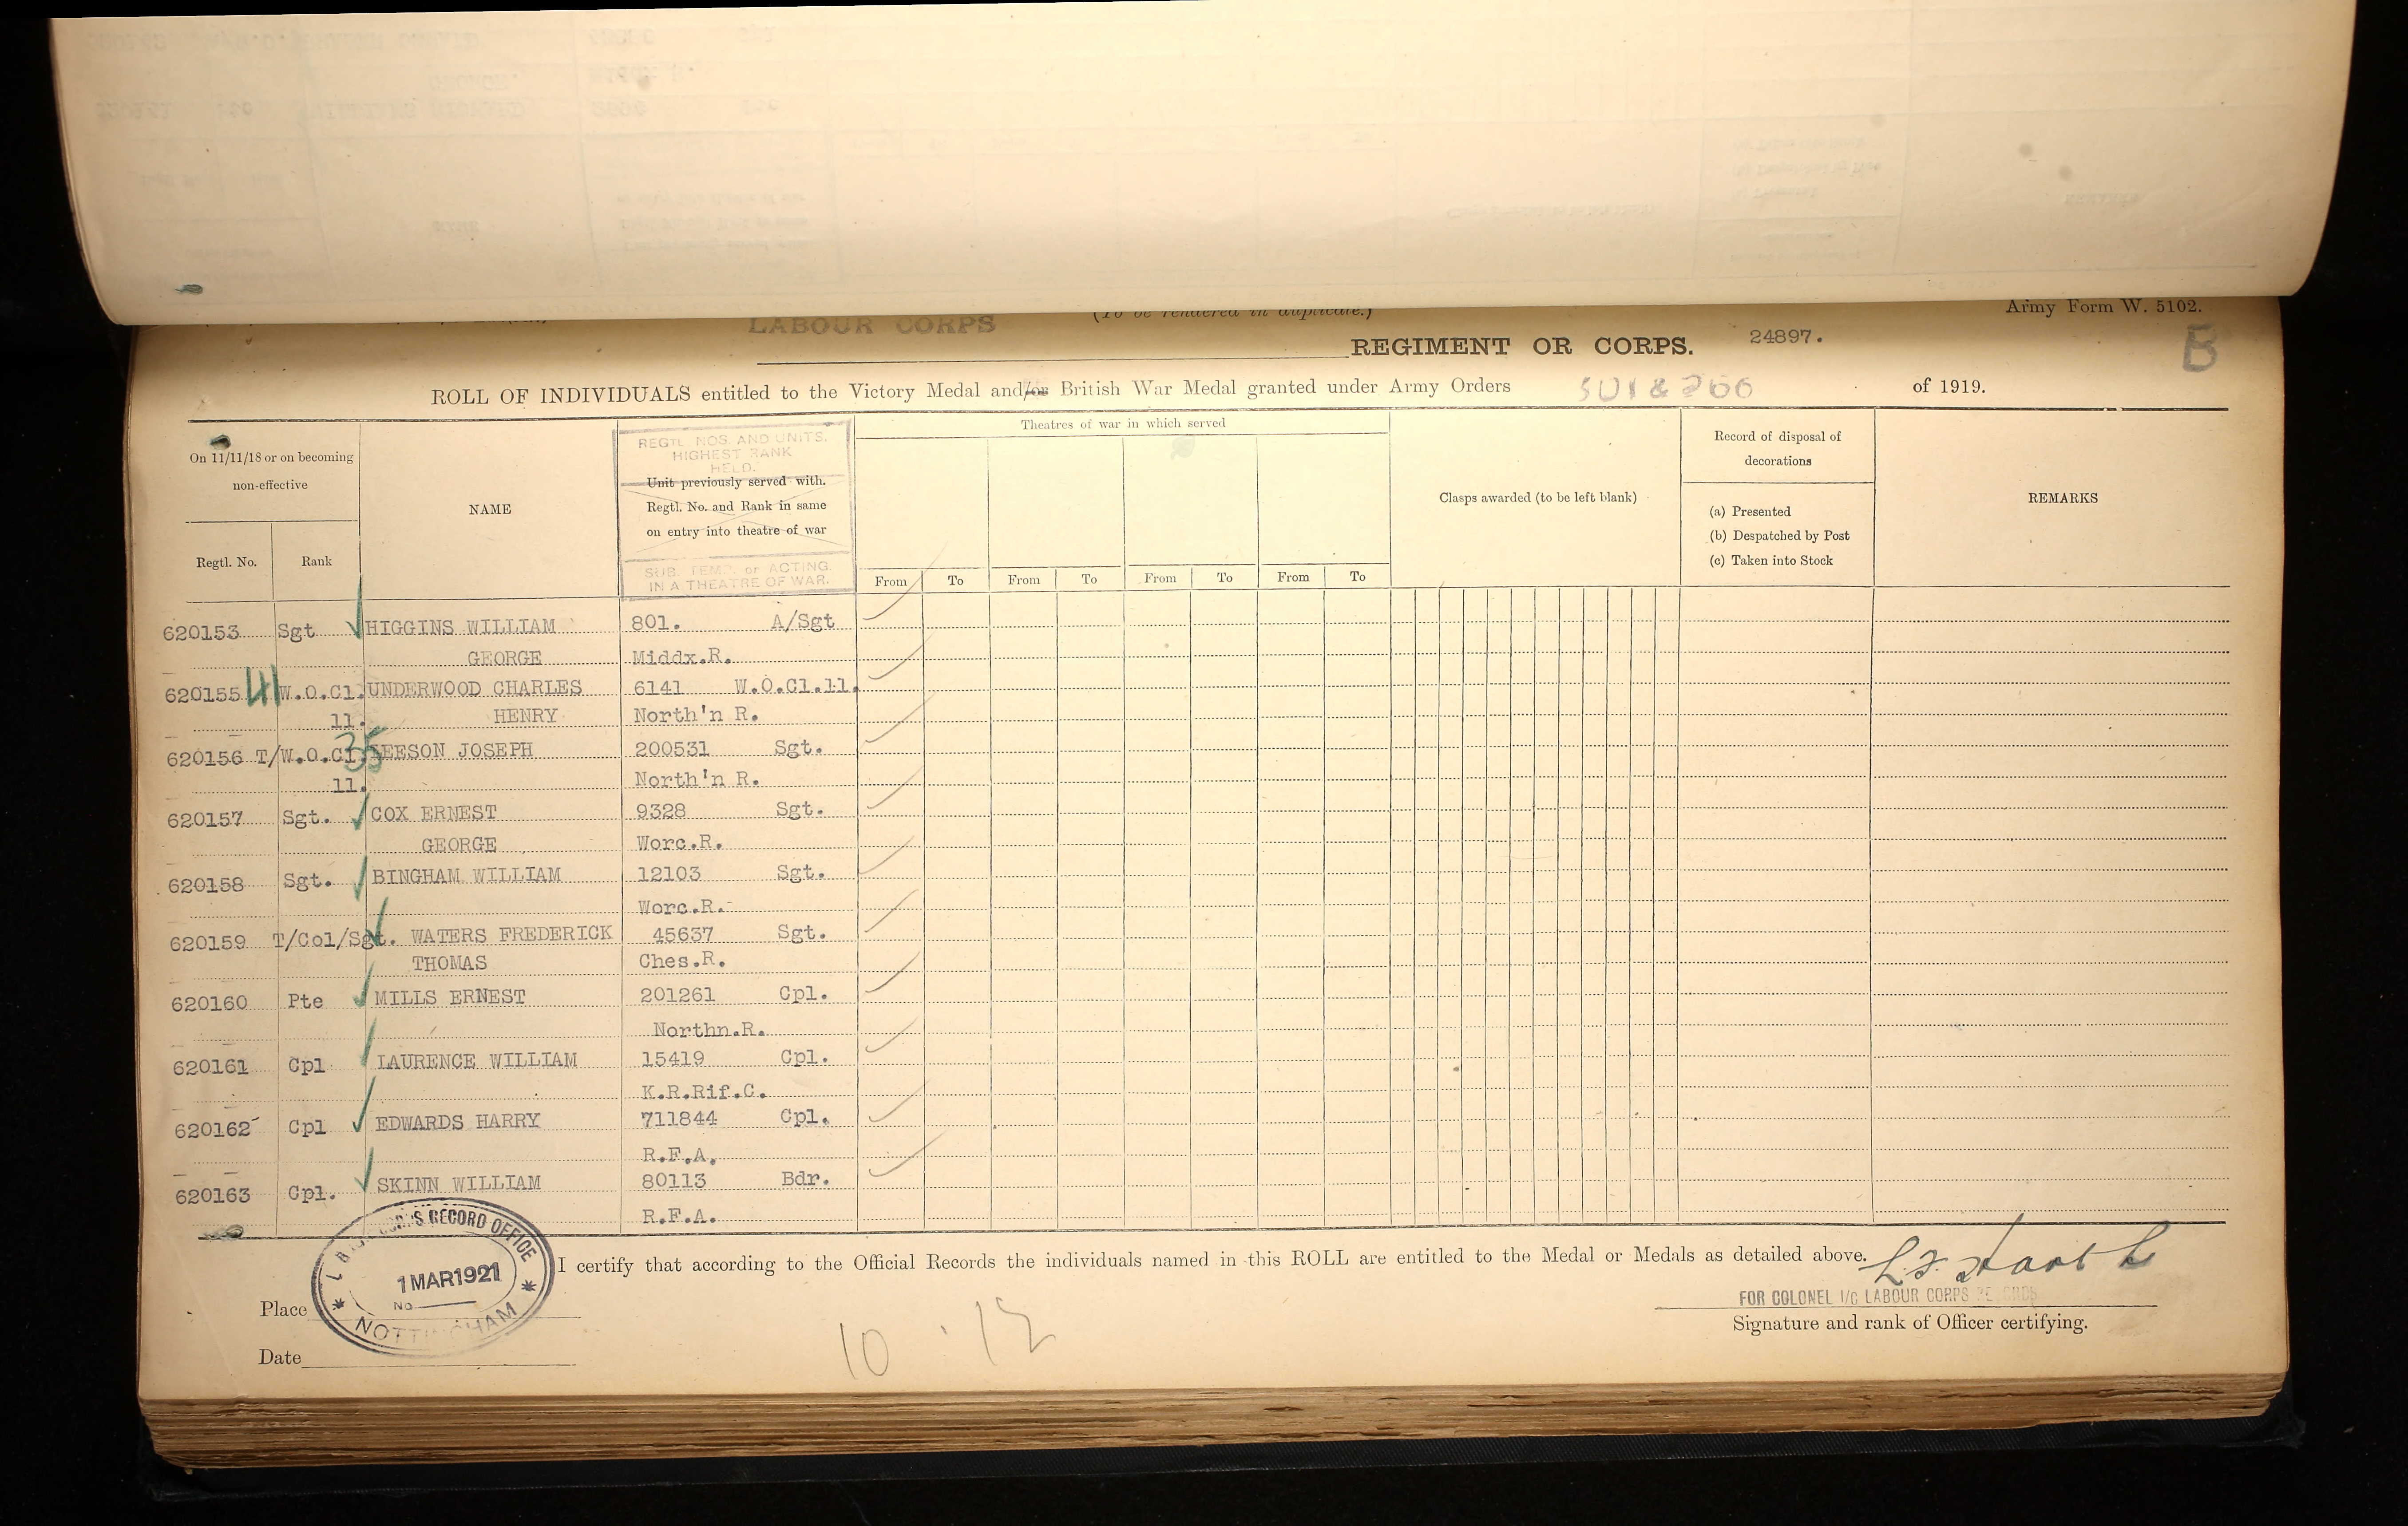 (To be rendered in duplicate.)
Army Form W. 5102.
LABOUR CORPS
REGIMENT OR CORPS.
24897.
B
ROLL OF INDIVIDUALS entitled to the Victory Medal and/or British War Medal granted under Army Orders 301 & 266 of 1919.
On 11/11/18 or on becoming
non-effective
Regtl. No. Rank
NAME
REGTL NOS. AND UNITS.
HIGHEST RANK
HELD.
Unit previously served with.
Regtl. No. and Rank in same
on entry into theatre of war
SUB. TEMP. or ACTING.
IN A THEATRE OF WAR.
Theatres of war in which served
From To From To From To From To
Clasps awarded (to be left blank)
Record of disposal of
decorations
(a) Presented
(b) Despatched by Post
(c) Taken into Stock
REMARKS
620153 Sgt HIGGINS WILLIAM 801. A/Sgt
GEORGE Middx.R.
620155 41 W.O.Cl. UNDERWOOD CHARLES 6141 W.O.Cl.11.
11. HENRY North'n R.
620156 T/W.O.Cl. 35 EESON JOSEPH 200531 Sgt.
11. North'n R.
620157 Sgt. COX ERNEST 9328 Sgt.
GEORGE Worc.R.
620158 Sgt. BINGHAM WILLIAM 12103 Sgt.
Worc.R.
620159 T/Col/Sgt. WATERS FREDERICK 45637 Sgt.
THOMAS Ches.R.
620160 Pte MILLS ERNEST 201261 Cpl.
Northn.R.
620161 Cpl LAURENCE WILLIAM 15419 Cpl.
K.R.Rif.C.
620162 Cpl EDWARDS HARRY 711844 Cpl.
R.F.A.
620163 Cpl. SKINN WILLIAM 80113 Bdr.
R.F.A.
RECORD OFFICE
1 MAR 1921
No
NOTTINGHAM
I certify that according to the Official Records the individuals named in this ROLL are entitled to the Medal or Medals as detailed above.
FOR COLONEL I/C LABOUR CORPS RECORDS
Signature and rank of Officer certifying.
Place
Date
10 . 12